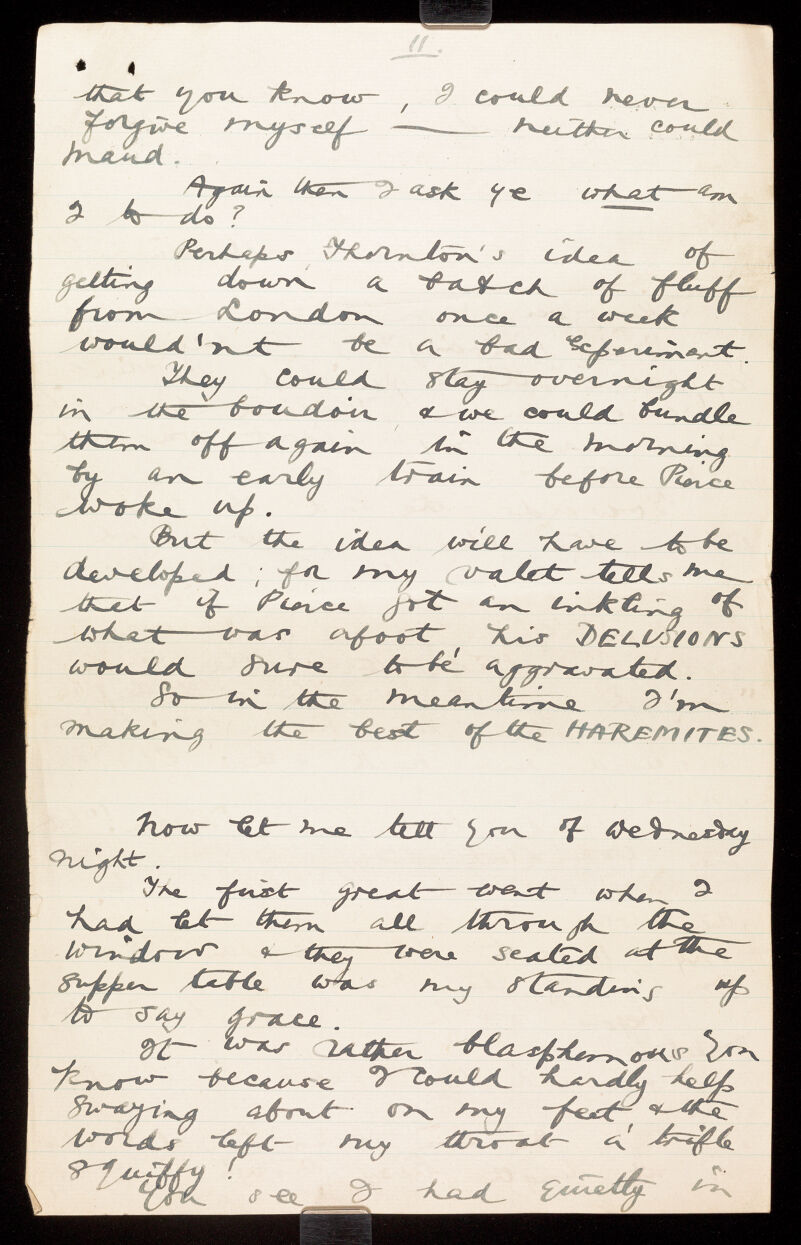 11.
that you know, I could never
forgive myself — neither could
Maud.
Again then I ask ye what am
I to do?
Perhaps Thornton's idea of
getting down a batch of fluff
from London once a week
would'nt be a bad experiment.
They could stay overnight
in the boudoir & we could bundle
them off again in the morning
by an early train before Pierce
woke up.
But the idea will have to be
developed; for my valet tells me
that if Pierce got an inkling of
what was afoot, his DELUSIONS
would sure to be aggravated.
So in the meantime I'm
making the best of the HAREMITES.
Now let me tell you of Wednesday
night.
The first great event when I
had let them all through the
window & they were seated at the
supper table was my standing up
to say grace.
It was rather blasphemous you
know because I could hardly help
swaying about on my feet & the
words left my throat a trifle
squiffy!
You see I had quietly in